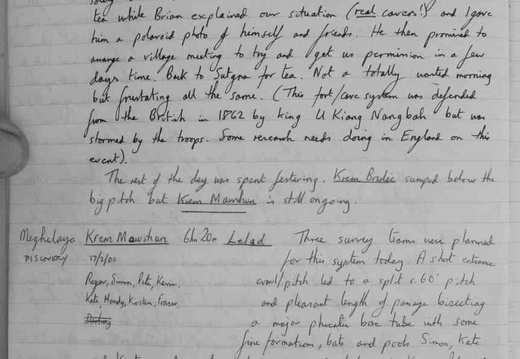 tea while Brian explained our situation (real cavers!) and I gave
him a polaroid photo of himself and friends. He then promised to
arrange a village meeting to try and get us permission in a few
days time. Back to Sutnga for tea. Not a totally wasted morning
but frustating all the same. (This fort/cave system was defended
from the British in 1862 by king U Kiang Nangbah but was
stormed by the troops. Some research needs doing in England on this
event).
The rest of the day was spent festering. Krem sumped below the
big pitch but Krem Mawshun is still ongoing.
Meghalaya Krem Mawshun 6hr 20m Lelad Three survey teams were planned
DISCOVERY 17/2/00 for this system today. A short entrance
Roger, Simon, Pete, Kevin, crawl/pitch led to a split c.60' pitch
Kate, Mandy, Kirsten, Fraser, and pleasant length of passage bisecting
a major phreatic bore tube with some
fine formation, bats and pools Simon, Kate